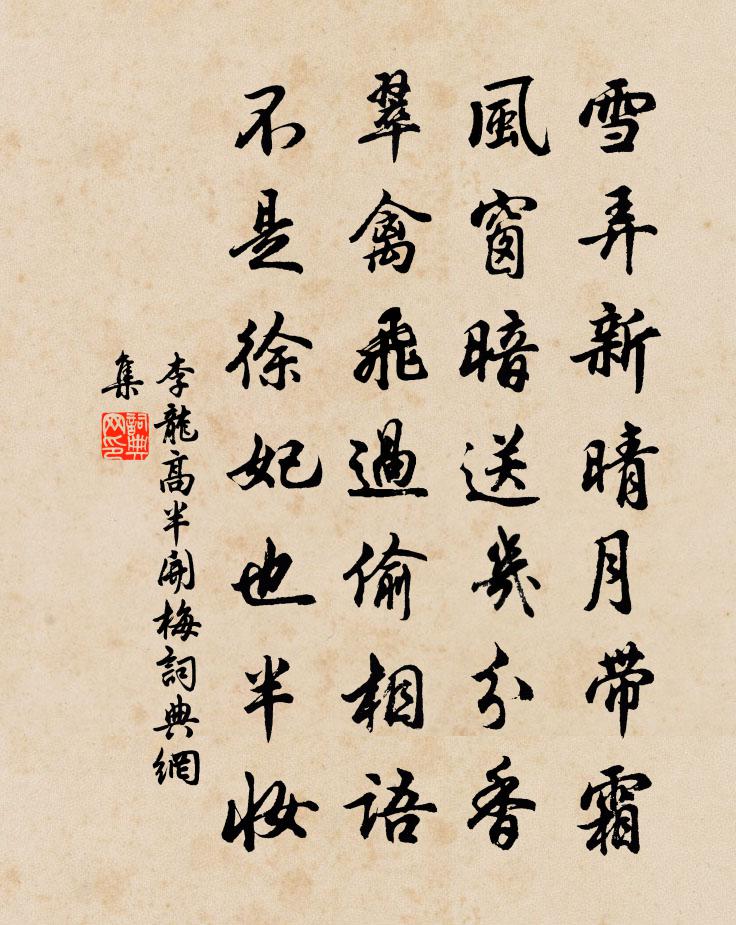 雪弄新晴月带霜
風窗暗送幾分香
翠禽飛過偷相語
不是徐妃也半妝
李龍高半開梅詞典網
集
詞典
网印